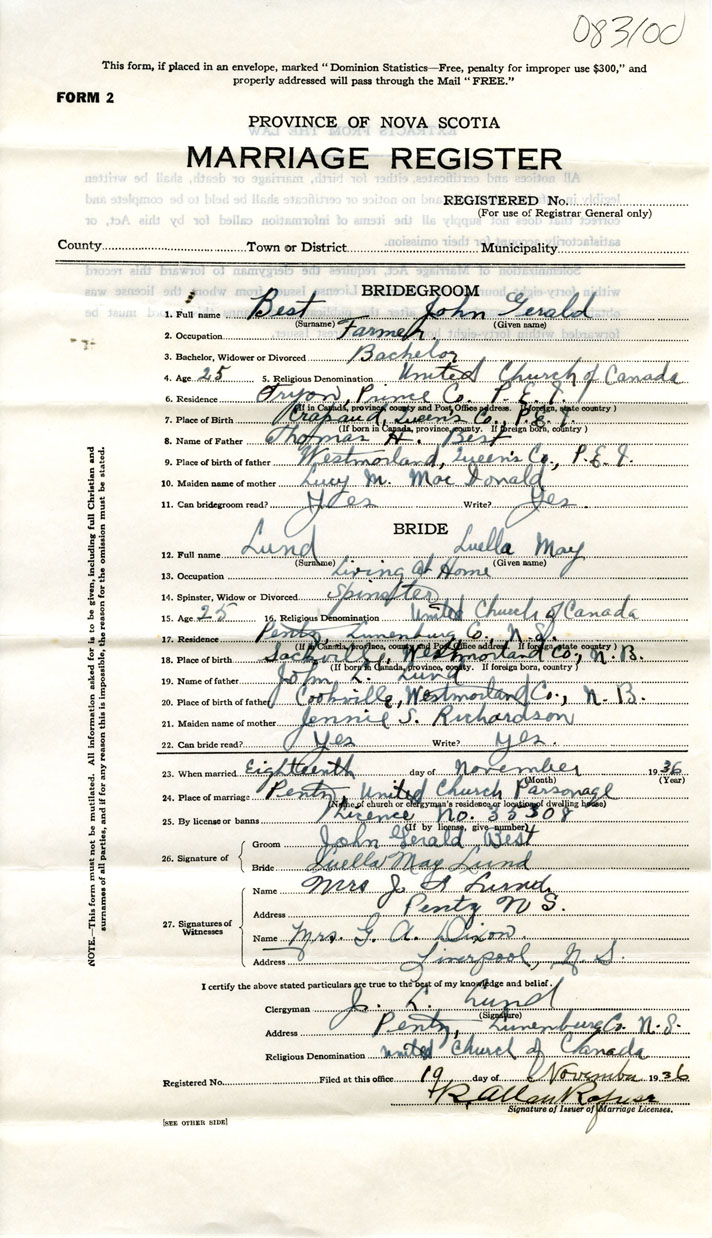 083100
This form, if placed in an envelope, marked "Dominion Statistics—Free, penalty for improper use $300," and
properly addressed will pass through the Mail "FREE."
FORM 2
PROVINCE OF NOVA SCOTIA
MARRIAGE REGISTER
REGISTERED No.
(For use of Registrar General only)
County Town or District Municipality
BRIDEGROOM
1. Full name Best John Gerald
(Surname) (Given name)
2. Occupation Farmer
3. Bachelor, Widower or Divorced Bachelor
4. Age 25 5. Religious Denomination United Church of Canada
6. Residence Tryon, Prince Co. P. E. I.
(If in Canada, province, county and Post Office address. If foreign, state country)
7. Place of Birth Crapaud, Queens Co., P. E. I.
(If born in Canada, province, county. If foreign born, country)
8. Name of Father Thomas H. Best
9. Place of birth of father Westmorland, Queen's Co., P. E. I.
10. Maiden name of mother Lucy M. Mac Donald
11. Can bridegroom read? Yes Write? Yes
BRIDE
12. Full name Lund Luella May
(Surname) (Given name)
13. Occupation Living at Home
14. Spinster, Widow or Divorced Spinster
15. Age 25 16. Religious Denomination United Church of Canada
17. Residence Pentz, Lunenburg Co., N. S.
(If in Canada, province, county and Post Office address. If foreign state country)
18. Place of birth Sackville, Westmorland Co., N. B.
(If born in Canada, province, county. If foreign born, country)
19. Name of father John L. Lund
20. Place of birth of father Cookville, Westmorland Co., N. B.
21. Maiden name of mother Jennie S. Richardson
22. Can bride read? Yes Write? Yes.
23. When married Eighteenth day of November 1936
(Month) (Year)
24. Place of marriage Pentz, United Church Parsonage
(Name of church or clergyman's residence or location of dwelling house)
25. By license or banns Licence No. 35308
(If by license, give number)
26. Signature of
Groom John Gerald Best
Bride Luella May Lund
27. Signatures of Witnesses
Name Mrs J. Lund
Address Pentz N S.
Name Mrs. G. A. Dixon
Address Liverpool, N. S.
I certify the above stated particulars are true to the best of my knowledge and belief.
Clergyman J. L. Lund
(Signature)
Address Pentz, Lunenburg Co. N. S.
Religious Denomination United Church of Canada
Registered No. Filed at this office 19 day of November 1936
R. Allan
Signature of Issuer of Marriage Licenses.
[SEE OTHER SIDE]
NOTE.—This form must not be mutilated. All information asked for is to be given, including full Christian and
surnames of all parties, and if for any reason this is impossible, the reason for the omission must be stated.